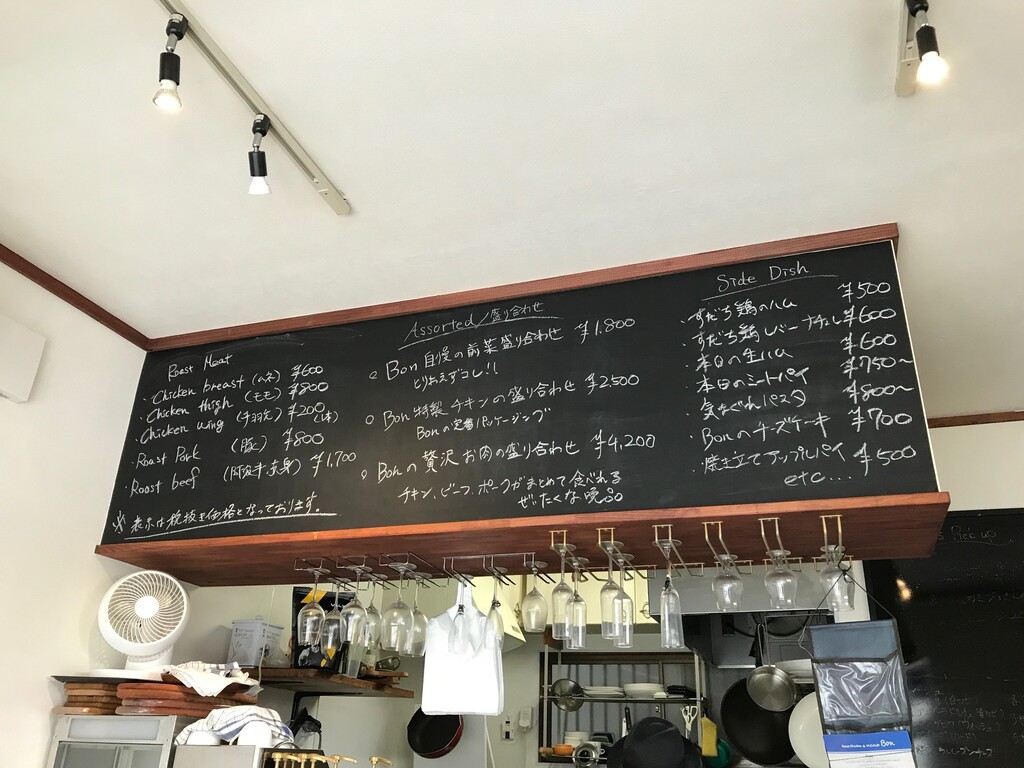 Roast Meat
・Chicken breast (ムネ) ¥600
・Chicken thigh (モモ) ¥800
・Chicken wing (手羽元) ¥200 (1本)
・Roast Pork (豚) ¥800
・Roast beef (赤身) ¥1,700
※ 表示は税抜き価格となっております。
Assorted/盛り合わせ
○ Bon 自慢の前菜盛り合わせ ¥1,800
とりあえずコレ!!
○ Bon 特製チキンの盛り合わせ ¥2500
Bonの定番パッケージング
○ Bonの贅沢お肉の盛り合わせ ¥4,200
チキン、ビーフ、ポークがまとめて食べれる
ぜいたくな一品
Side Dish
・すだち鶏のハム ¥500
・すだち鶏レバーナチュレ ¥600
・本日の生ハム ¥600
・本日のミートパイ ¥750~
・気まぐれパスタ ¥800~
・Bonのチーズケーキ ¥700
・焼き立てアップルパイ ¥500
etc...
Pick up
Bon